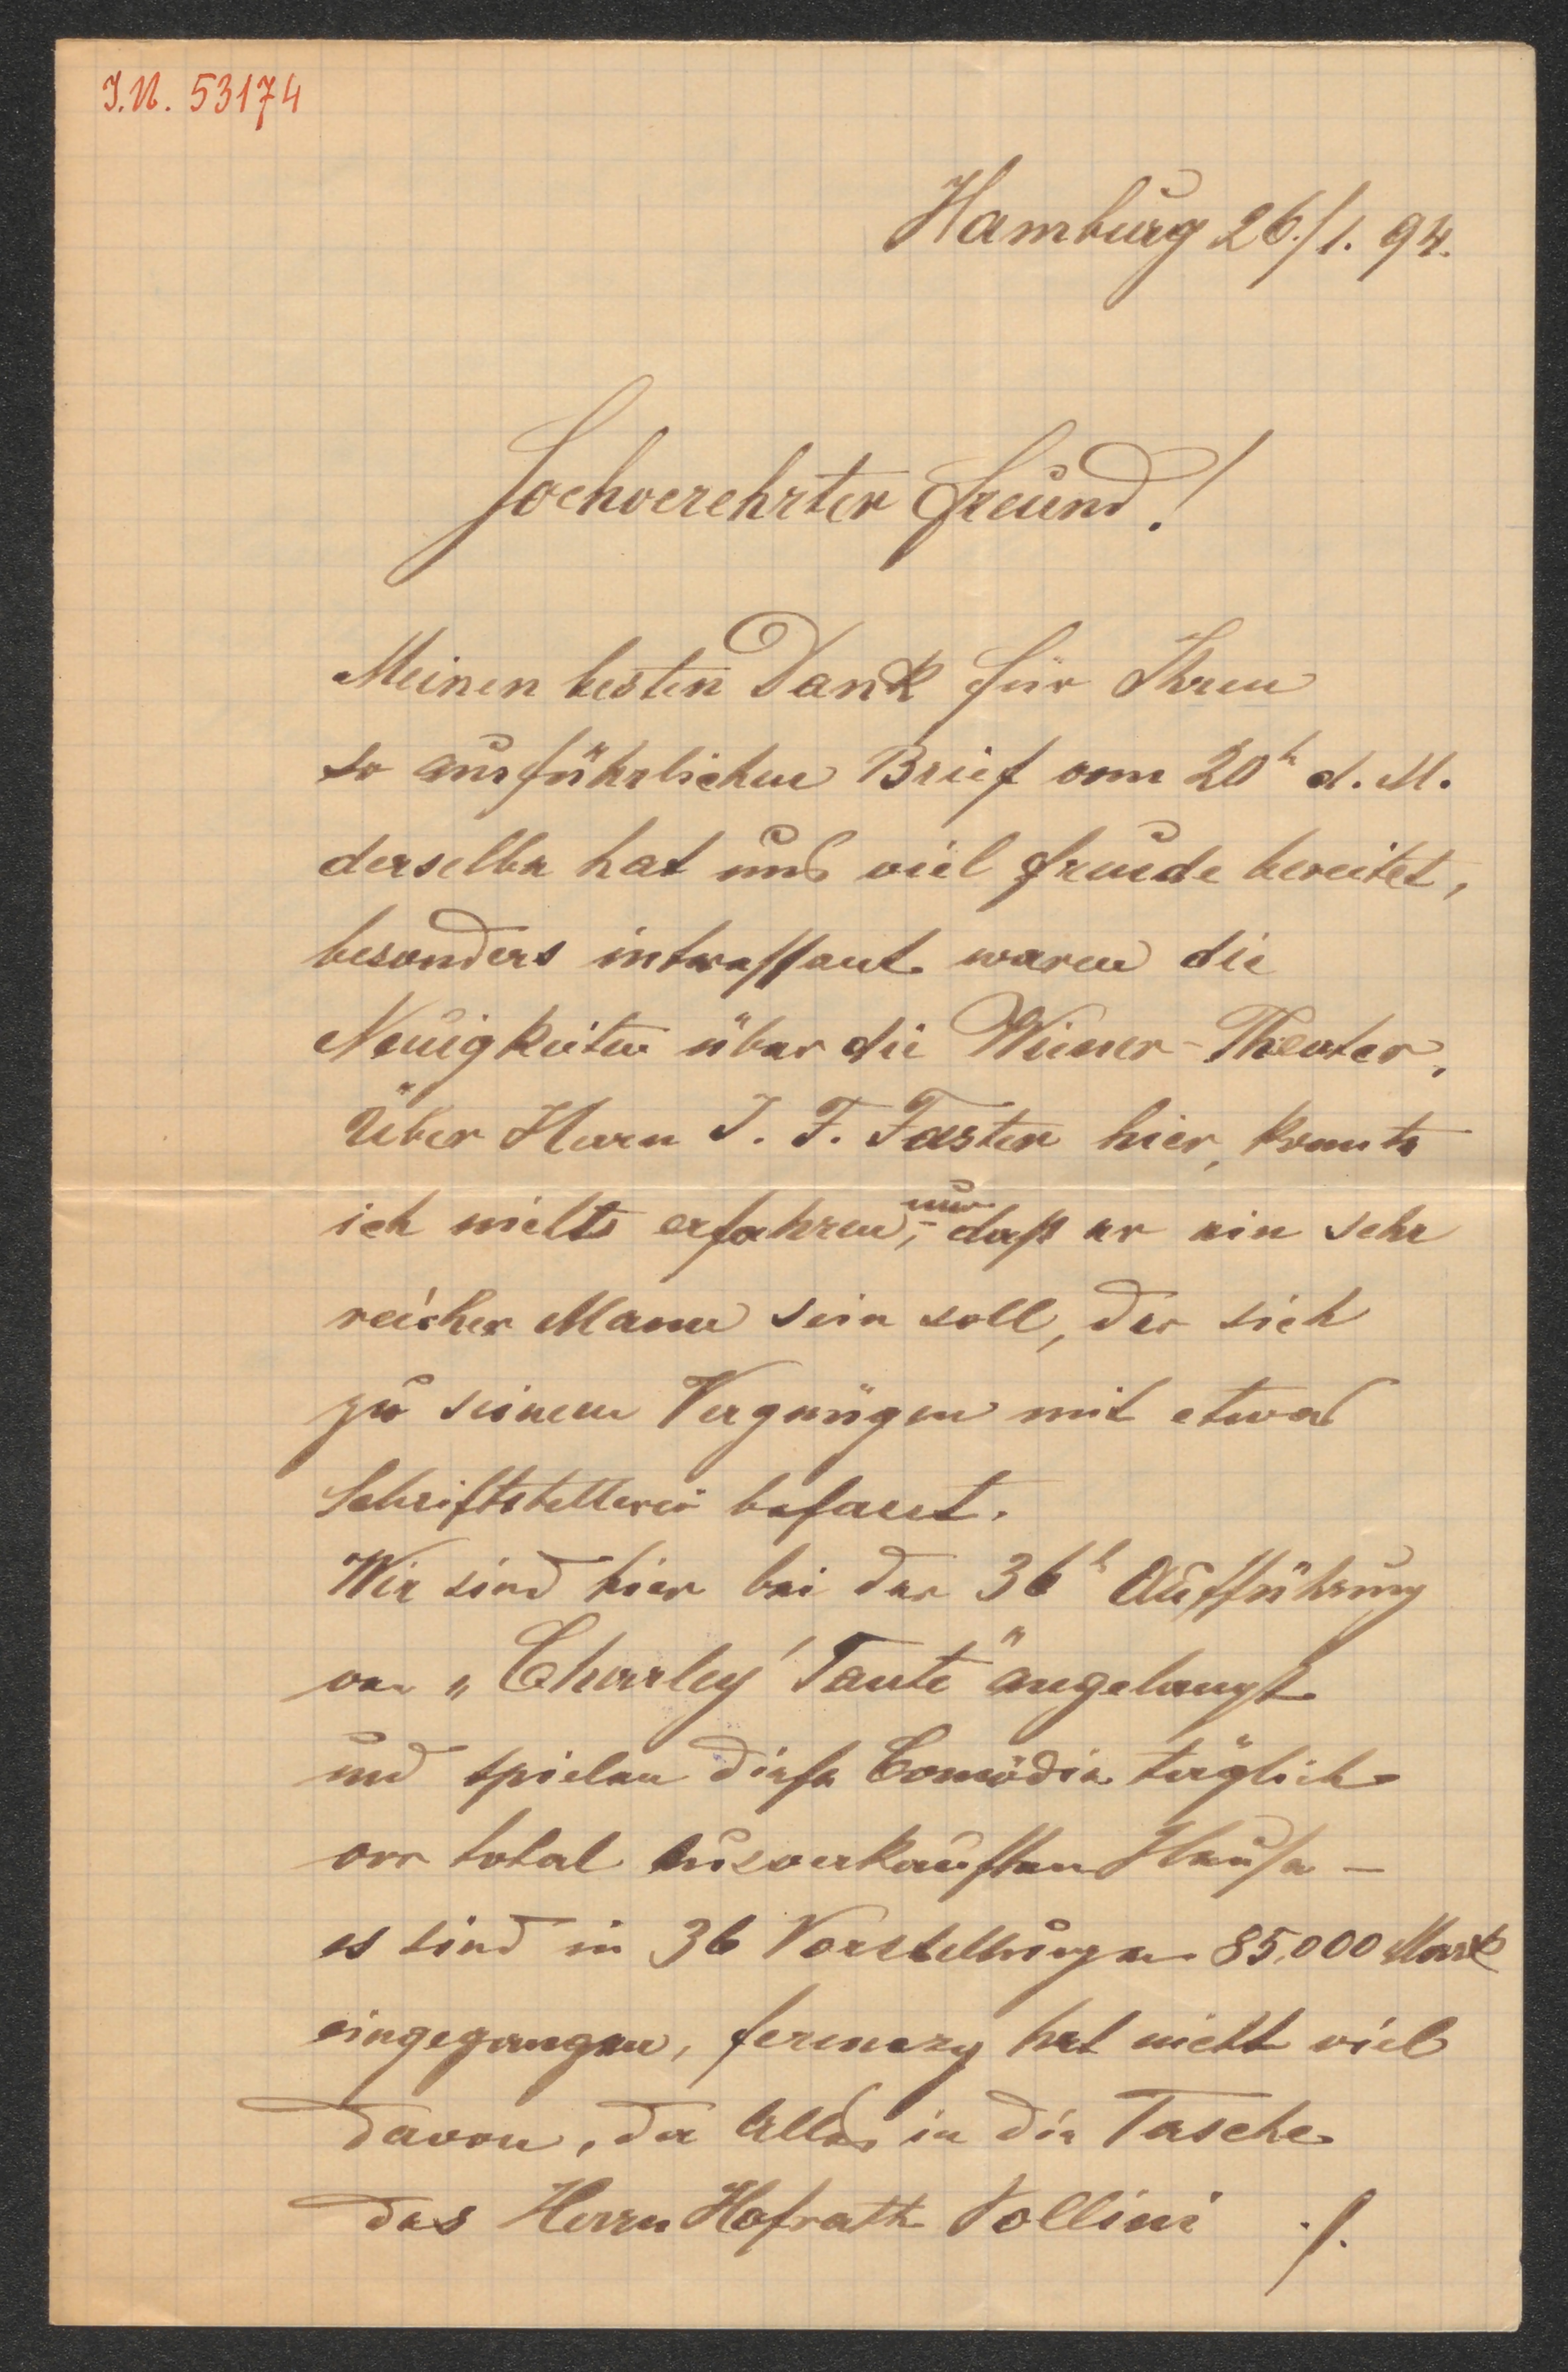 J.N. 53174
Hamburg 26./1. 94.
Hochverehrter Freund!
Meinen besten Dank für Ihren
so ausführlichen Brief vom 20t d. M.
derselbe hat uns viel Freude bereitet,
besonders interessant waren die
Neuigkeiten über die Wiener-Theater,
Über Herrn J. F. Faster hier, konnte
ich nichts erfahren, nur daß er ein sehr
reicher Mann sein soll, der sich
zu seinem Vergnügen mit etwas
Schriftstellerei befasst.
Wir sind hier bei der 36t Aufführung
von „Charley' Tante" angelangt
und spielen diese Comödie täglich
vor total ausverkauften Hause –
es sind in 36 Vorstellungen 85,000 Mark
eingegangen, Ferenczy hat nicht viel
davon, da Alles in die Tasche
des Herrn Hofrath Pollini ./.